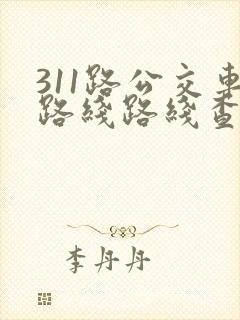 311路公交车
路线路线查
李丹丹